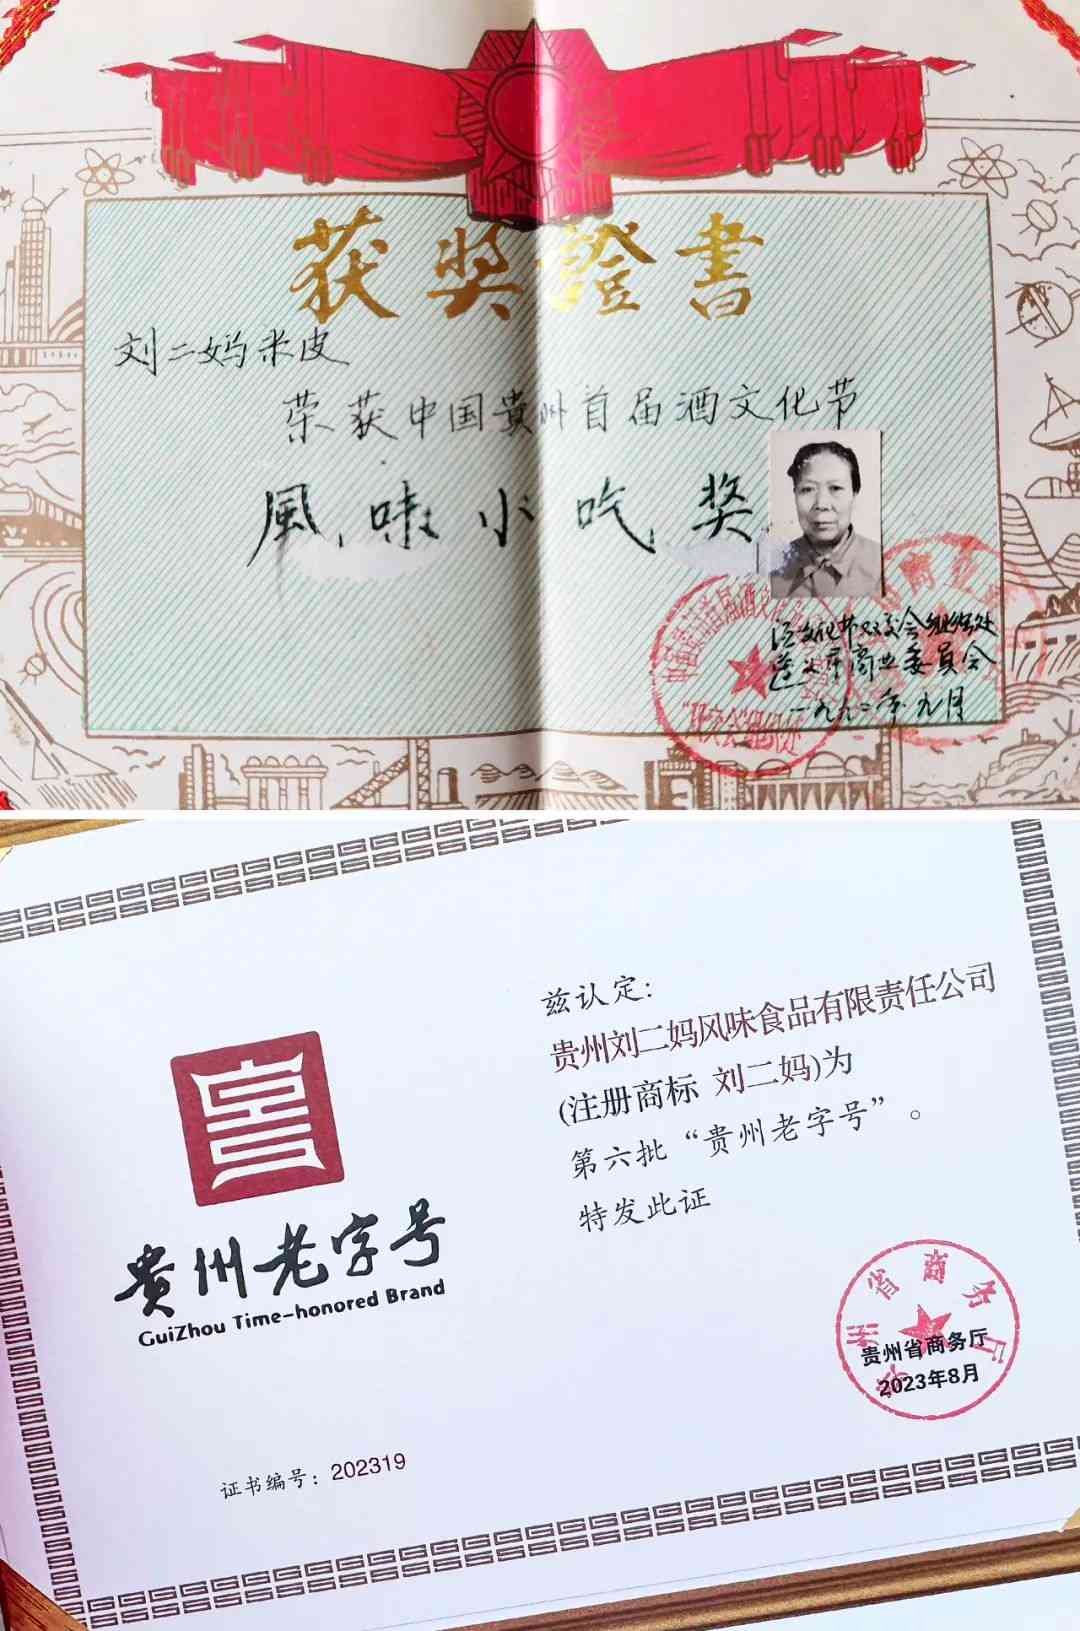 获奖證書
刘二妈米皮
荣获中国贵州首届酒文化节
風味小吃奖
酒文化节双交会组织处
遵义市商业委员会
一九九二年九月
兹认定:
贵州刘二妈风味食品有限责任公司
(注册商标 刘二妈)为
第六批“贵州老字号”。
特发此证
贵州老字号
GuiZhou Time-honored Brand
贵州省商务厅
2023年8月
证书编号：202319